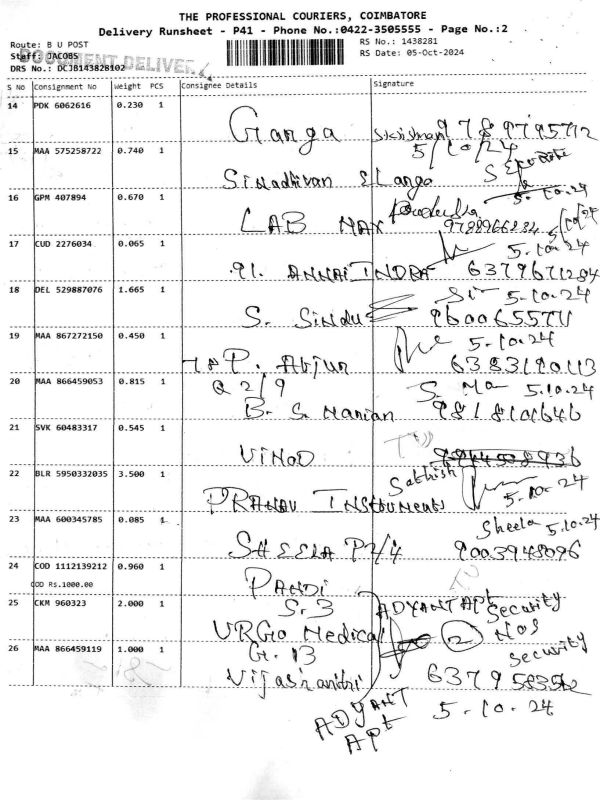 THE PROFESSIONAL COURIERS, COIMBATORE
Delivery Runsheet - P41 - Phone No.:0422-3505555 - Page No.:2
Route: B U POST
RS No.: 1438281
Staff: JACOBS
RS Date: 05-Oct-2024
DOCUMENT DELIVER
DRS No.: DCJB143828102
S No Consignment No Weight PCS Consignee Details Signature
14 PDK 6062616 0.230 1
Ganga 9789795712
5/10/24
15 MAA 575258722 0.740 1
Elango
5.10.24
16 GPM 407894 0.670 1
LAB MAX 9788966234
17 CUD 2276034 0.065 1
5.10.24
91. ANNAI INDRA 6379671284
18 DEL 529887076 1.665 1
5.10.24
S. Sindu 9600655711
19 MAA 867272150 0.450 1
5.10.24
P. Arjun 6383190113
20 MAA 866459053 0.815 1
Q 2/9 5.10.24
B. S. Manian 9818101646
21 SVK 60483317 0.545 1
VINOD
22 BLR 5950332035 3.500 1
Sathish 5.10.24
PRANAV INSTRUMENTS
23 MAA 600345785 0.085 1
Sheela 5.10.24
SHEELA P2/4 9003948096
24 COD 1112139212 0.960 1
COD Rs.1000.00
PANDI
25 CKM 960323 2.000 1
S.3 ADYANT APt Security
URGO Medical 2 Nos
26 MAA 866459119 1.000 1
G.13 Security
5.10.24
ADYANT
APt